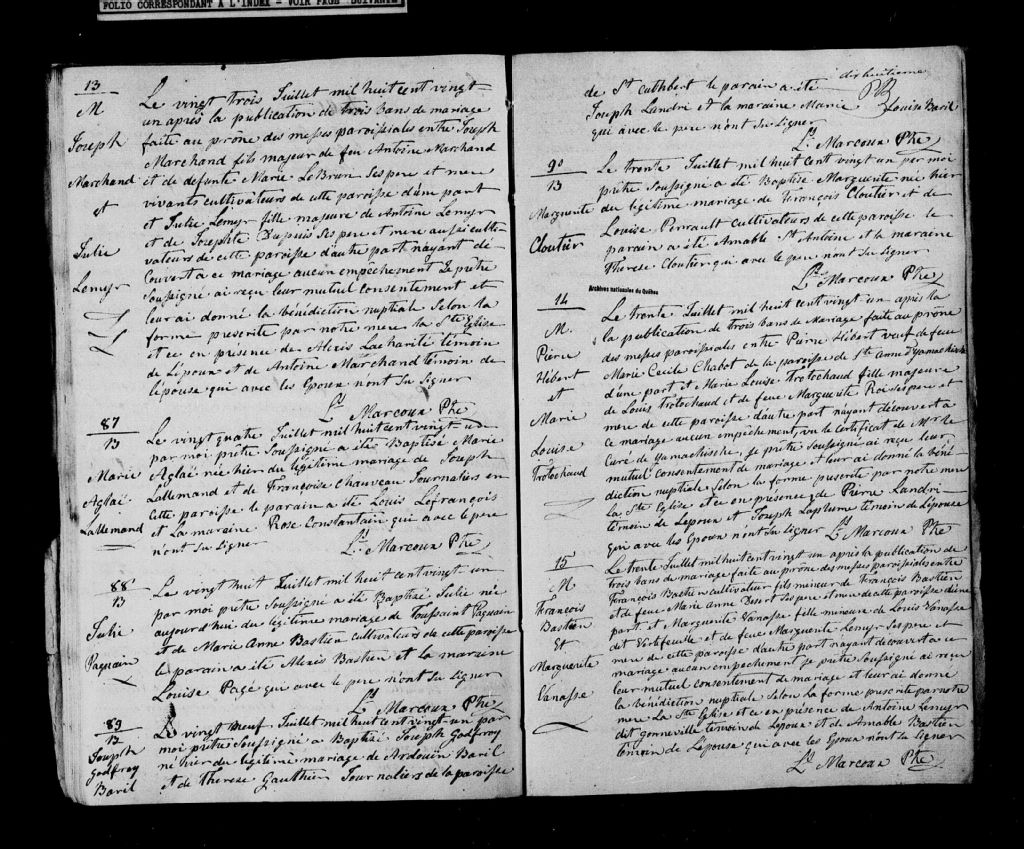 FOLIO CORRESPONDANT A L'INDEX - VOIR PAGE SUIVANTE
13
M
Joseph
Marchand
et
Julie
Lemyr
Le vingt trois Juillet mil huit cent vingt-
un après la publication de trois bans de mariage
faite au prône des messes paroissiales entre Joseph
Marchand fils majeur de feu Antoine Marchand
et de defunte Marie LeBrun ses pere et mere
vivants cultivâteurs de cette paroisse d'une part
et Julie Lemyr fille majeure de Antoine Lemyr
et de Josephte Dupuis ses pere et mere aussi culti-
vateurs de cette paroisse d'autre part nayant dé-
couvert a ce mariage aucun empêchement Je prêtre
soussigné ai reçu leur mutuel consentement et
leur ai donné la bénédiction nuptiale selon la
forme prescrite par notre mere la Ste Eglise
et ce en présence de Alexis Lacharité temoin
de Lépoux et de Antoine Marchand temoin de
lépouse qui avec les Epoux nont su signer
Ls Marcoux Ptre
87
B
Marie
Aglaé
Lallemand
Le vingt quatre Juillet mil huit cent vingt un
par moi prêtre soussigné a été Baptisé Marie
Aglaé née hier du légitime mariage de Joseph
Lallemand et de Francoise Chauveau Journaliers en
cette paroisse le parain a été Louis Lefrançois
et La maraine Rose Constantain qui avec le pere
n'ont su signer
Ls Marcoux Ptre
88
B
Julie
Paquain
Le vingt huit Juillet mil huit cent vingt un
par moi prêtre soussigné a été Baptisé Julie née
aujourd'hui du légitime mariage de Toussaint Paquain
et de Marie Anne Bastien cultivateurs de cette paroisse
le parain a été Alexis Bastien et la maraine
Louise Pagé qui avec le pere n'ont su signer
Ls Marcoux Ptre
89
B
Joseph
Godfroy
Baril
Le vingt neuf Juillet mil huit cent vingt-un par
moi prêtre soussigné a Baptisé Joseph Godfroy
né hier du légitime mariage de Ardouin Baril
et de Therese Gauthier Journaliers de la paroisse
dixhuitieme
de St Cuthbert le parain a été
Joseph Landri et la maraine Marie Louise Baril
qui avec le pere nont su signer
Ls Marcoux Ptre
90
B
Marguerite
Cloutier
Le trente Juillet mil huit cent vingt un par moi
prêtre soussigné a été Baptisé Marguerite né hier
du légitime mariage de François Cloutier et de
Louise Perrault cultivateurs de cette paroisse le
parain a été Amable St Antoine et la maraine
Therese Cloutier qui avec le pere nont su signer
Ls Marcoux Ptre
Archives nationales du Québec
14
M.
Pierre
Hébert
et
Marie
Louise
Trotochaud
Le trente Juillet mil huit cent vingt un après la
la publication de trois bans de Mariage faite au prône
des messes paroissiales entre Pierre Hébert veuf de feue
Marie Cecile Chabot de la paroisse de Ste Anne Dyamachiche
d'une part et Marie Louise Trotochaud fille majeure
de Louis Trotochaud et de feue Marguerite Roi ses pere et
mere de cette paroisse d'autre part n'ayant découvert a
ce mariage aucun empêchement, vu le certificat de Mr le
Curé de Yamachiche, je prêtre soussigné ai reçu leur
mutuel consentement de mariage et leur ai donné la béné-
diction nuptiale selon la forme prescrite par notre mere
la Ste Eglise et ce en présence de Pierre Landri
temoin de Lépoux et Joseph Laplume temoin de Lépouse
qui avec les Epoux nont su signer Ls Marcoux Ptre
15
M
François
Bastien
Et
Marguerite
Vanasse
Le trente Juillet mil huit cent vingt un après la publication de
trois bans de mariage faite au prône des messes paroissiales entre
François Bastien Cultivateur fils mineur de François Bastien
et de feue Marie Anne ses pere et mere de cette paroisse dune
part et Marguerite Vanasse fille mineure de Louis Vanasse
dit Vertefeuille et de feue Marguerite Lemyr ses pere et
mere de cette paroisse dautre part nayant découvert a ce
mariage aucun empêchement je prêtre soussigné ai reçu
leur mutuel consentement de mariage et leur ai donné
la bénédiction nuptiale selon la forme prescrite par notre
mere la Ste Eglise et ce en présence de Antoine Lemyr
dit gonneville temoin de Lépoux et de Amable Bastien
temoin de Lépouse qui avec les Epoux n'ont su signer
Ls Marcoux Ptre